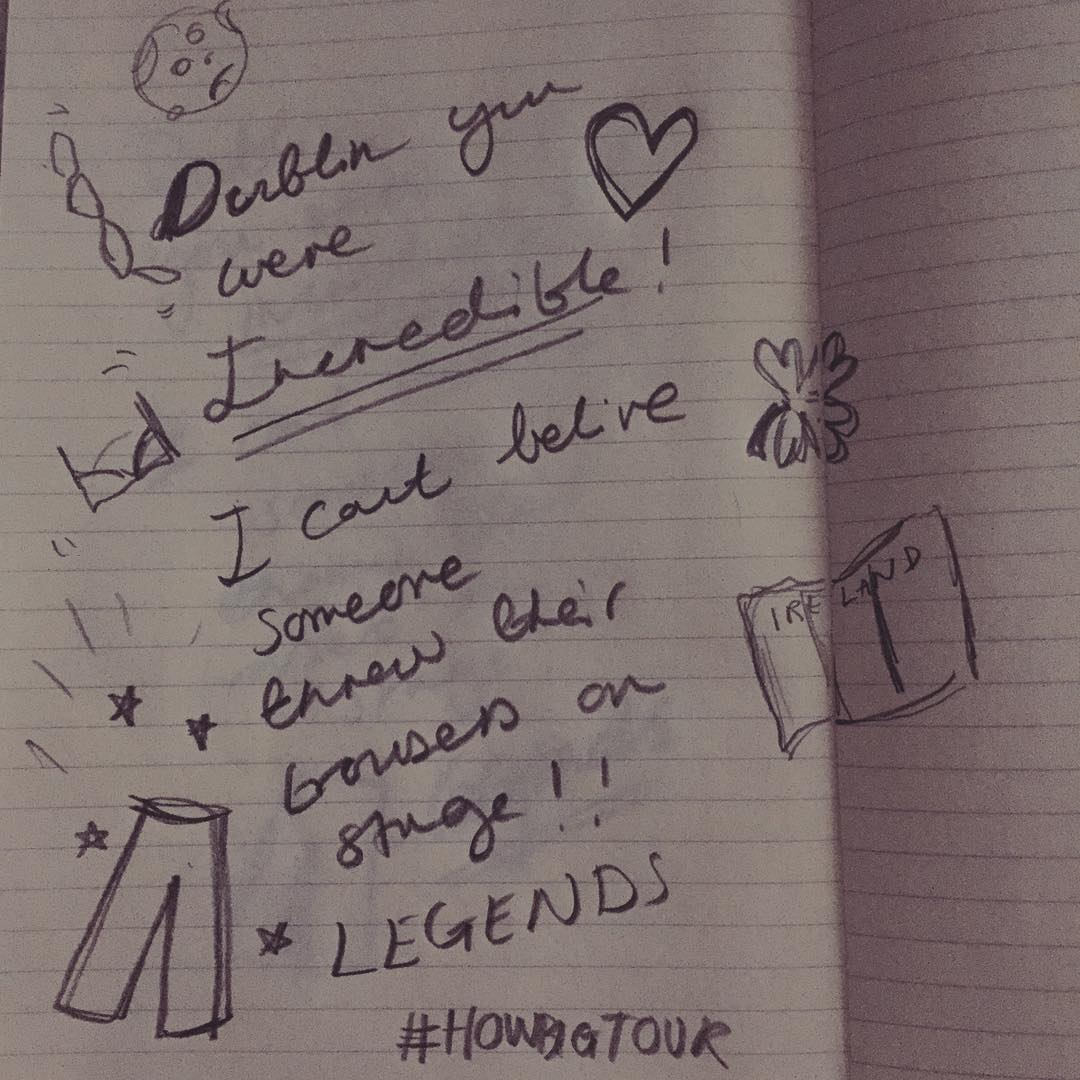 Dublin you
were
Incredible!
I cant belive
someone
threw their
trousers on
stage!!
LEGENDS
#HOWBIGTOUR
IRELAND